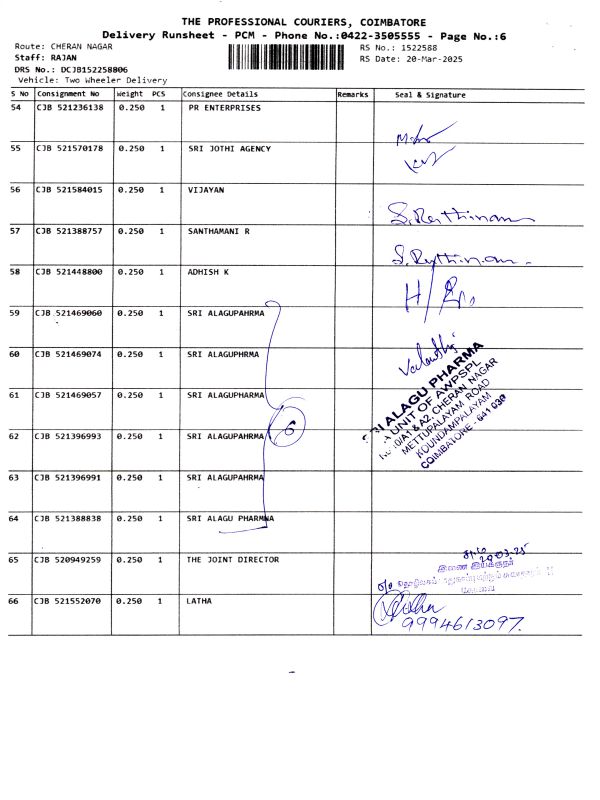 THE PROFESSIONAL COURIERS, COIMBATORE
Delivery Runsheet - PCM - Phone No.:0422-3505555 - Page No.:6
Route: CHERAN NAGAR
RS No.: 1522588
Staff: RAJAN
RS Date: 20-Mar-2025
DRS No.: DCJB152258806
Vehicle: Two Wheeler Delivery
S No Consignment No Weight PCS Consignee Details Remarks Seal & Signature
54 CJB 521236138 0.250 1 PR ENTERPRISES
55 CJB 521570178 0.250 1 SRI JOTHI AGENCY
56 CJB 521584015 0.250 1 VIJAYAN
57 CJB 521388757 0.250 1 SANTHAMANI R
58 CJB 521448800 0.250 1 ADHISH K
59 CJB 521469060 0.250 1 SRI ALAGUPAHRMA
60 CJB 521469074 0.250 1 SRI ALAGUPHRMA
61 CJB 521469057 0.250 1 SRI ALAGUPAHRMA
62 CJB 521396993 0.250 1 SRI ALAGUPAHRMA 6
63 CJB 521396991 0.250 1 SRI ALAGUPAHRMA
64 CJB 521388838 0.250 1 SRI ALAGU PHARMNA
SRI ALAGU PHARMA
A UNIT OF AWPSPL
10/A1 & A2, CHERAN NAGAR
METTUPALAYAM ROAD
KOUNDAMPALAYAM
COIMBATORE - 641 030
65 CJB 520949259 0.250 1 THE JOINT DIRECTOR
20.03.25
இணை இயக்குநர்
66 CJB 521552070 0.250 1 LATHA
9994613097.